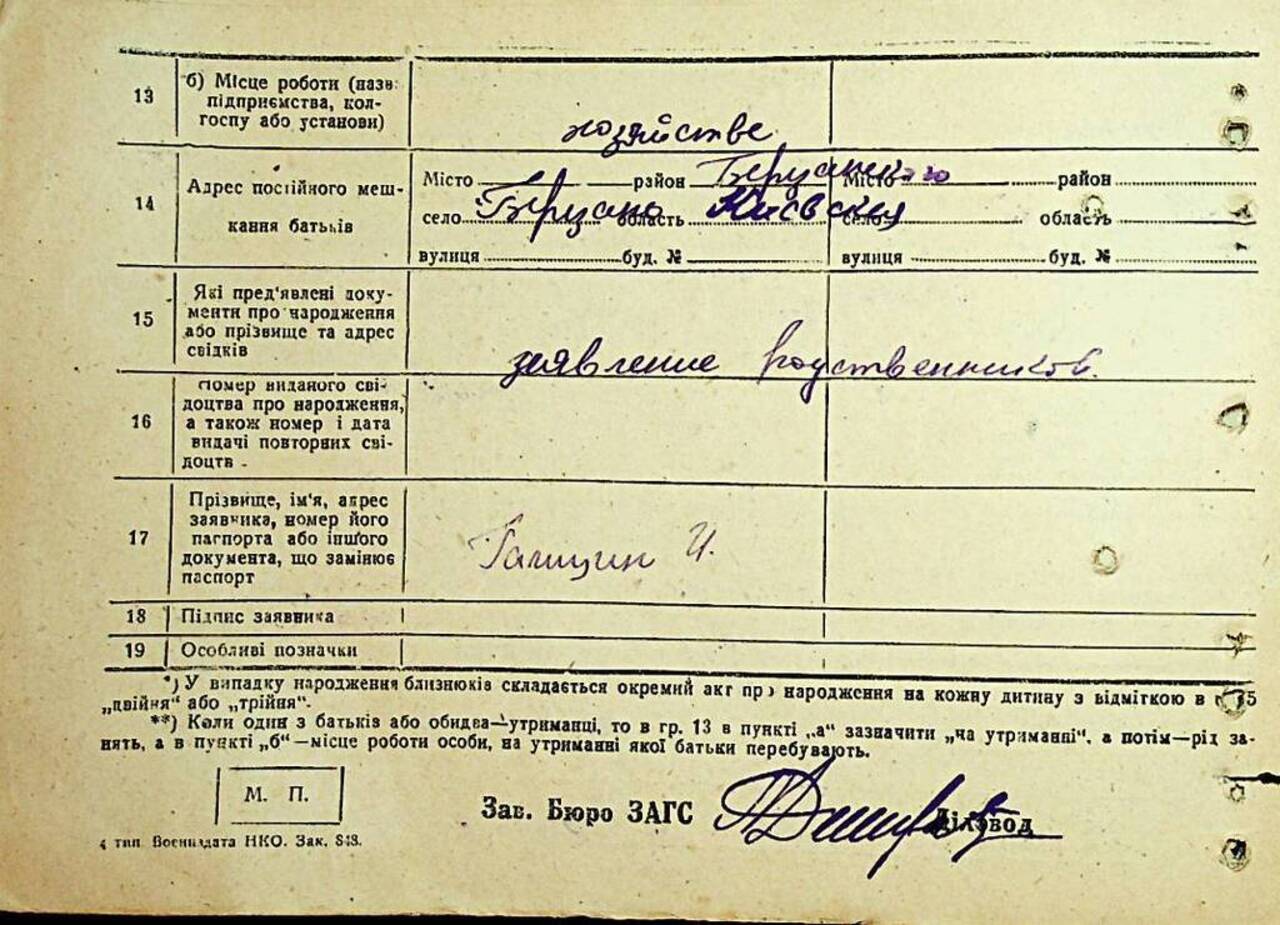 13 б) Місце роботи (назв.
підприємства, кол-
госпу або установи)
хозяйстве
14 Адрес постійного меш-
кання батьків
Місто район Місто район
село Березань область Киевская село область
вулиця буд. № вулиця буд. №
15 Які пред'явлені доку-
менти про народження
або прізвище та адрес
свідків
заявление родственников.
16 Номер виданого сві-
доцтва про народження,
а також номер і дата
видачі повторних сві-
доцтв -
17 Прізвище, ім'я, адрес
заявника, номер його
паспорта або іншого
документа, що замінює
паспорт
И.
18 Підпис заявника
19 Особливі позначки
*) У випадку народження близнюків складається окремий акт про народження на кожну дитину з відміткою в 5
„двійня" або „трійня".
**) Коли один з батьків або обидва—утриманці, то в гр. 13 в пункті „а" зазначити „на утриманні", а потім—рід за-
нять, а в пункті „б"—місце роботи особи, на утриманні якої батьки перебувають.
М. П.
Зав. Бюро ЗАГС Діловод
4 тип. Воениздата НКО. Зак. 848.